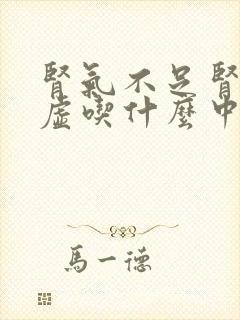 腎氣不足腎
虛喫什麼中
馬一德